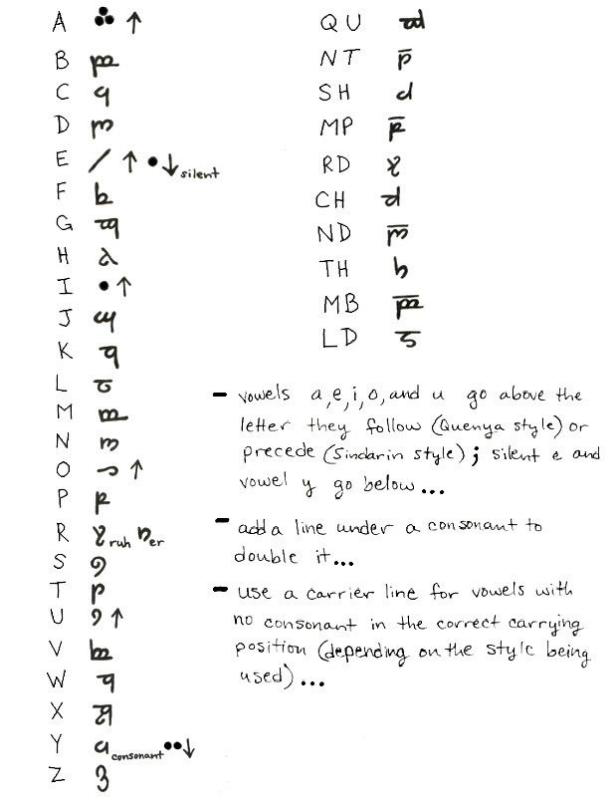 A ↑
B
C
D
E / ↑ • ↓ silent
F
G
H
I • ↑
J
K
L
M
N
O ↑
P
R ruh er
S
T
U ↑
V
W
X
Y consonant •• ↓
Z
QU
NT
SH
MP
RD
CH
ND
TH
MB
LD
- vowels a,e,i,o,and u go above the
letter they follow (Quenya style) or
precede (Sindarin style); silent e and
vowel y go below...
- add a line under a consonant to
double it...
- use a carrier line for vowels with
no consonant in the correct carrying
position (depending on the style being
used)...